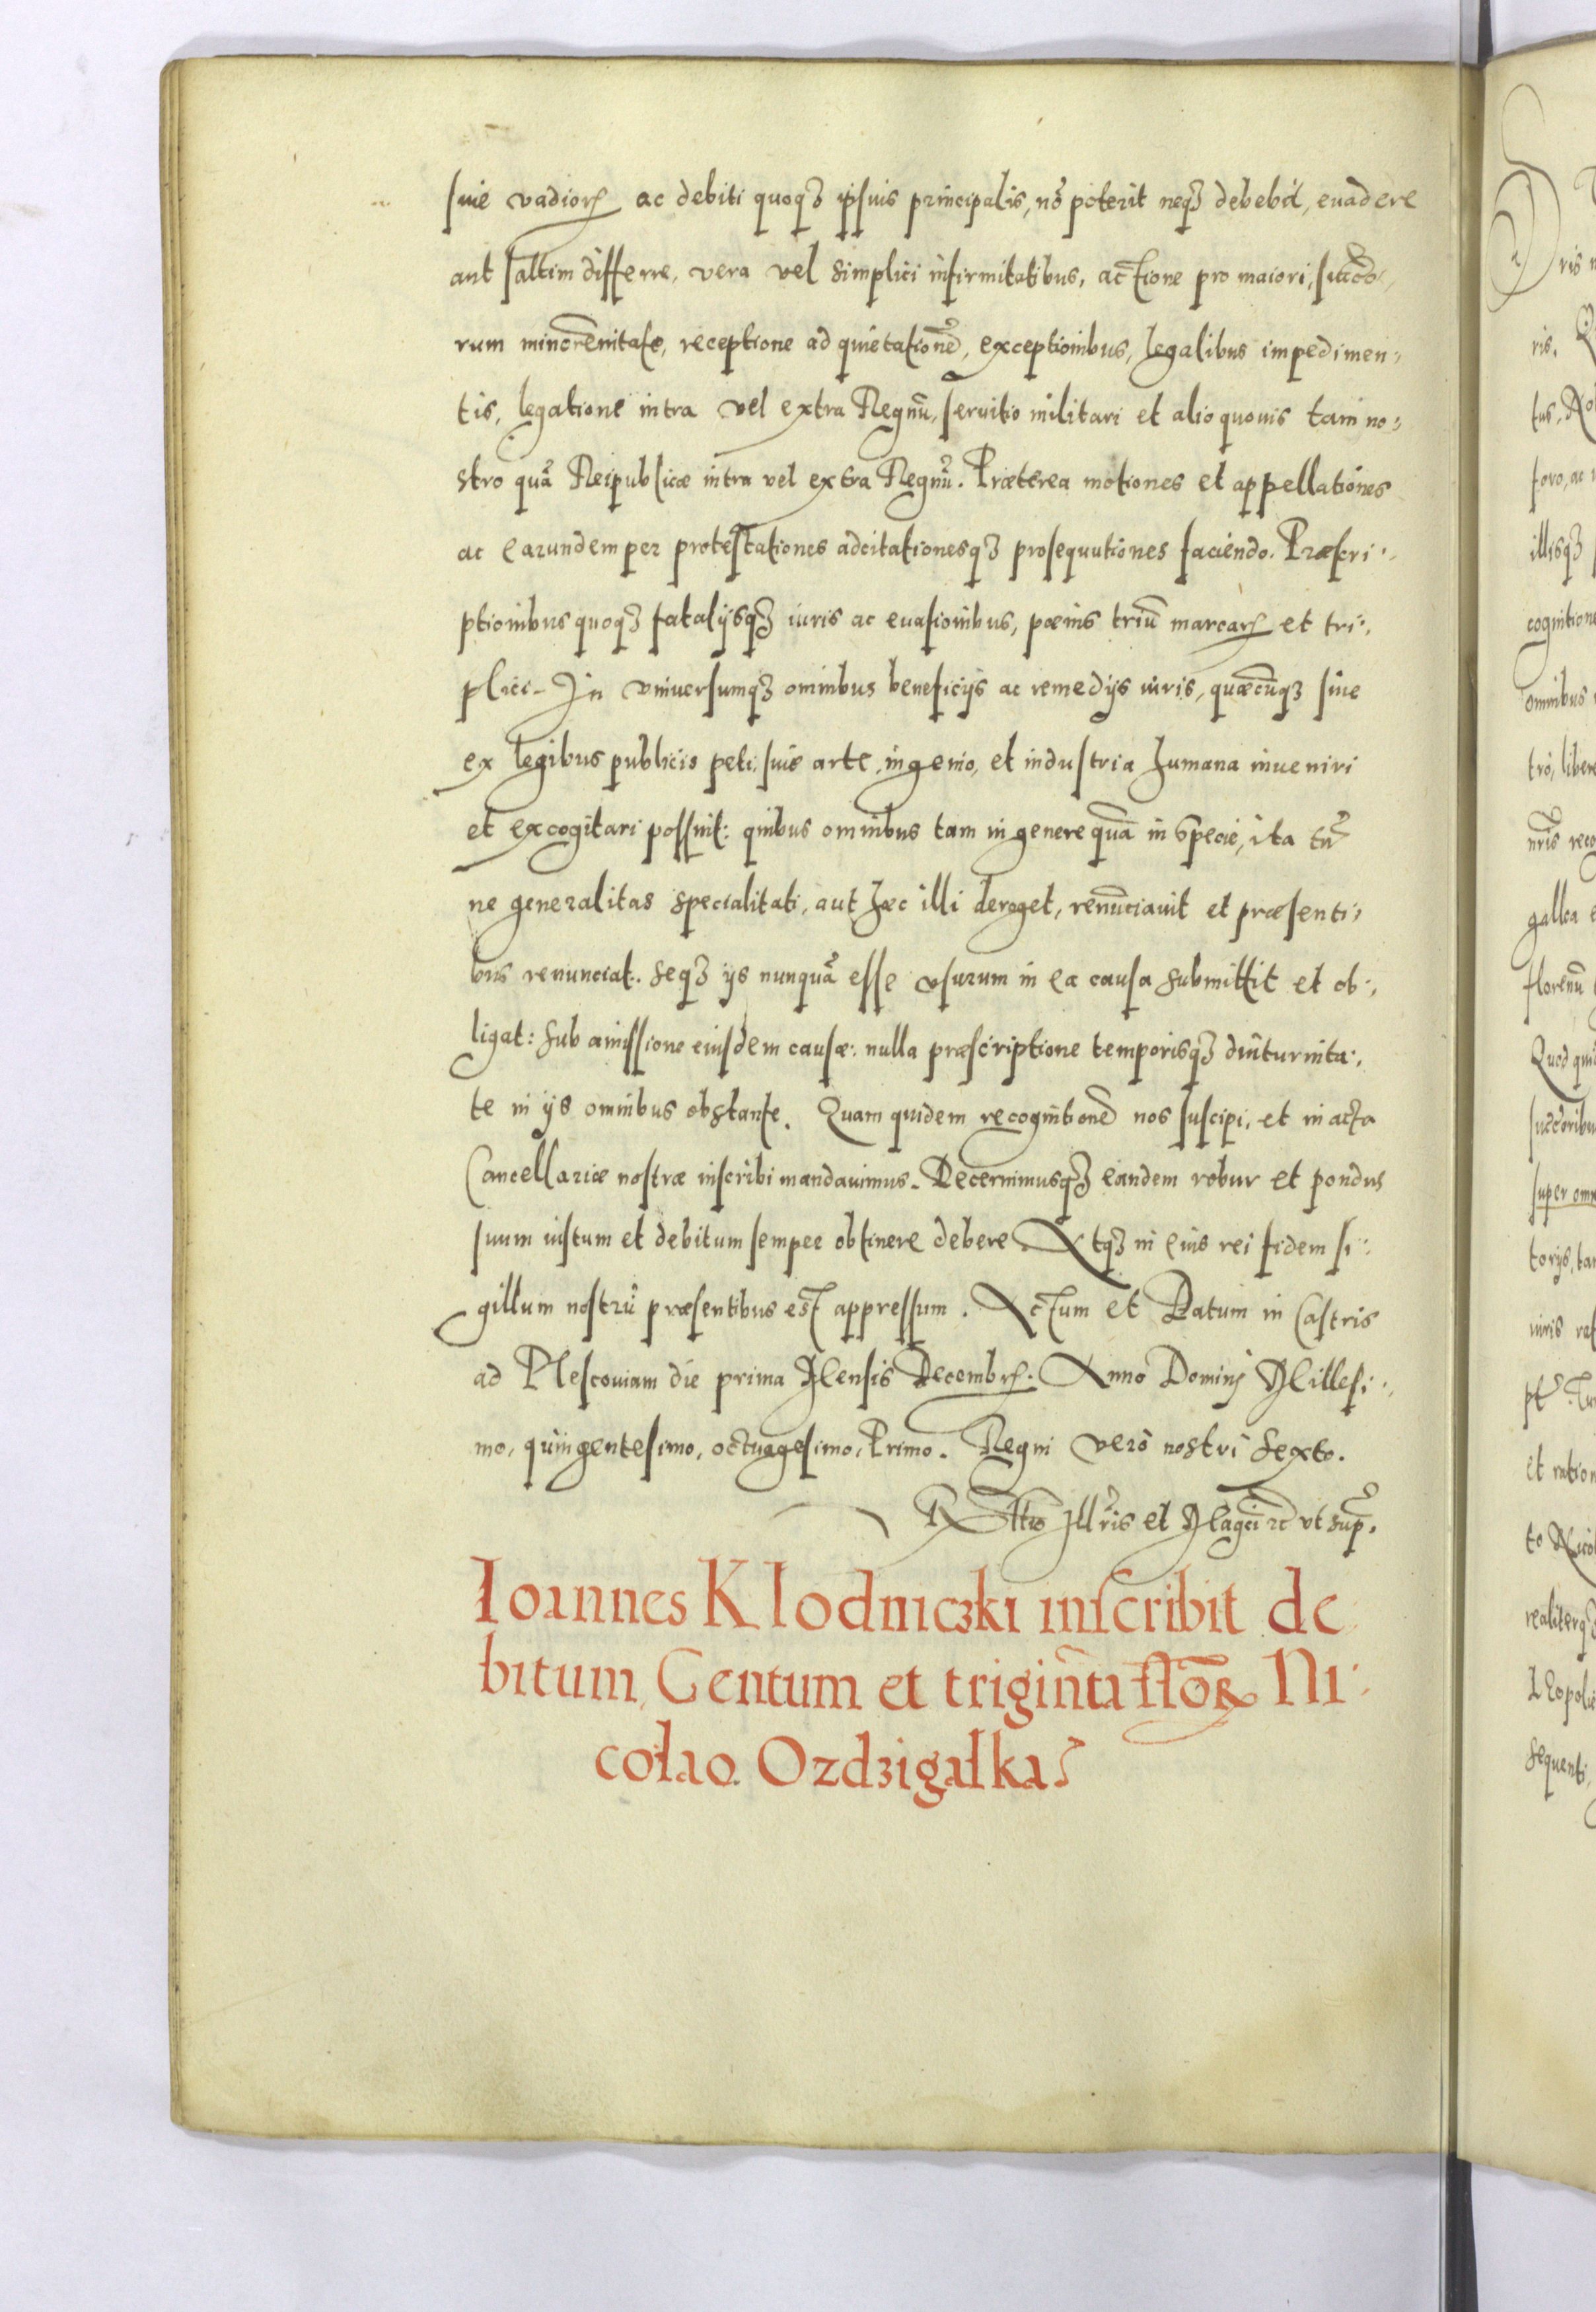 siue vadior[um] ac debiti quoqꝫ ipsius principalis, nõ poterit neqꝫ debebit, euadere
aut saltim differre, vera vel simplici infirmitatibus, actione pro maiori, succo
rum minorennitate, receptione ad quietationẽ, exceptionibus, legalibus impedimen:
tis, legatione intra vel extra Regnũ, seruitio militari et alio quouis tam no:
stro quã Reipublicæ intra vel extra Regnũ. Præterea motiones et appellationes
ac earundem per protestationes adcitationesqꝫ prosequutiones faciendo. Præscri:
ptionibus quoqꝫ fatalijsqꝫ iuris ac euasionibus, pœnis triũ marcarꝝ et tri:
plici. In vniuersumqꝫ omnibus beneficijs ac remedijs iuris, quæcũqꝫ siue
ex legibus publicis peti, siue arte, ingenio, et industria humana inueniri
et excogitari possunt: quibus omnibus tam in genere quã in specie, ita tñ
ne generalitas specialitati, aut hæc illi deroget, renũciauit et præsenti:
bus renunciat. Seqꝫ ijs nunquã esse vsurum in ea causa submittit et ob:
ligat: sub amissione eiusdem causæ: nulla præscriptione temporisqꝫ diuturnita:
te in ijs omnibus obstante. Quam quidem recognitionẽ nos suscipi, et in acta
Cancellariæ nostræ inscribi mandauimus. Decernimusqꝫ eandem robur et pondus
suum iustum et debitum semper obtinere debere. Atqꝫ in eius rei fidem si:
gillum nostrũ præsentibus est appressum. Actum et Datum in Castris
ad Plescouiam die prima Mensis Decembrꝭ. Anno Domini Millesi:
mo, quingentesimo, octuagesimo, Primo. Regni vero nostri Sexto.
Rttio Illris et Magci ꝛc vt sup.
Ioannes Klodniczki inscribit de
bitum, Centum et triginta florꝝ Ni:
colao Ozdzigalka